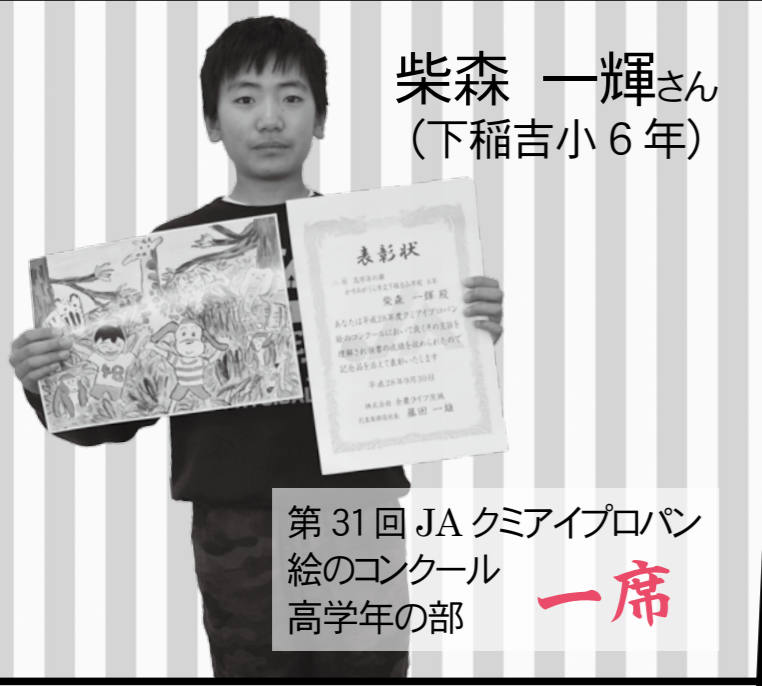 柴森 一輝さん
(下稲吉小6年)
表彰状
一席 高学年の部
かすみがうら市立下稲吉小学校 六年
柴森 一輝 殿
あなたは平成28年度クミアイプロパン
絵のコンクールにおいて良くその主旨を
理解され頭書の成績を収められたので
記念品を添えて表彰いたします
平成28年9月30日
株式会社 全農ライフ茨城
代表取締役社長 藤田 一雄
第31回JAクミアイプロパン
絵のコンクール
高学年の部
一席